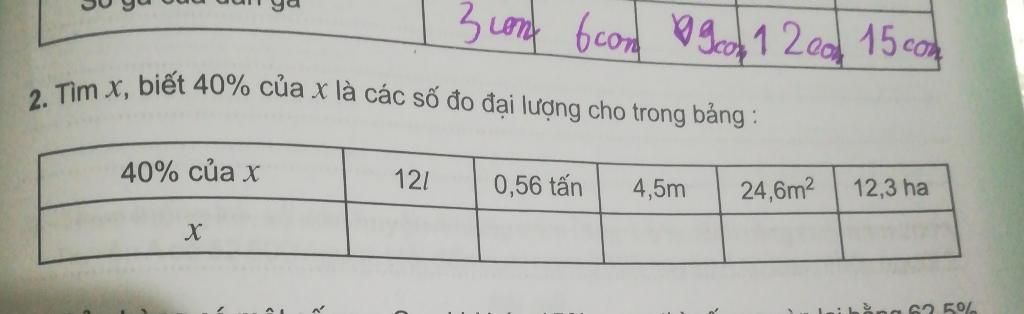 Số gà của đàn gà
3 con 6con 9con 12con 15con
2. Tìm x, biết 40% của x là các số đo đại lượng cho trong bảng :
40% của x 12l 0,56 tấn 4,5m 24,6m² 12,3 ha
x
62,5%